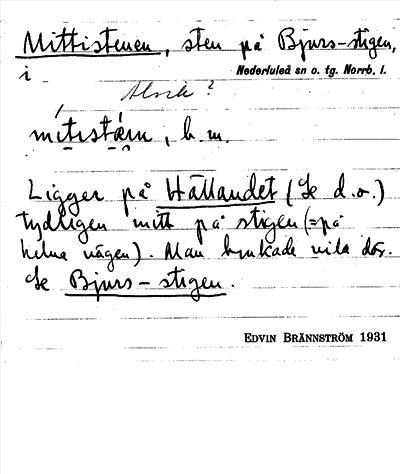 Mittistenen, sten på Bjurs-stigen,
i Nederluleå sn o. tg. Norrb. l.
Alvik?
b. m.
Ligger på Hällandet (Se d.o.)
tydligen mitt på stigen (=på
helva vägen). Man brukade vila där.
Se Bjurs-stigen.
EDVIN BRÄNNSTRÖM 1931